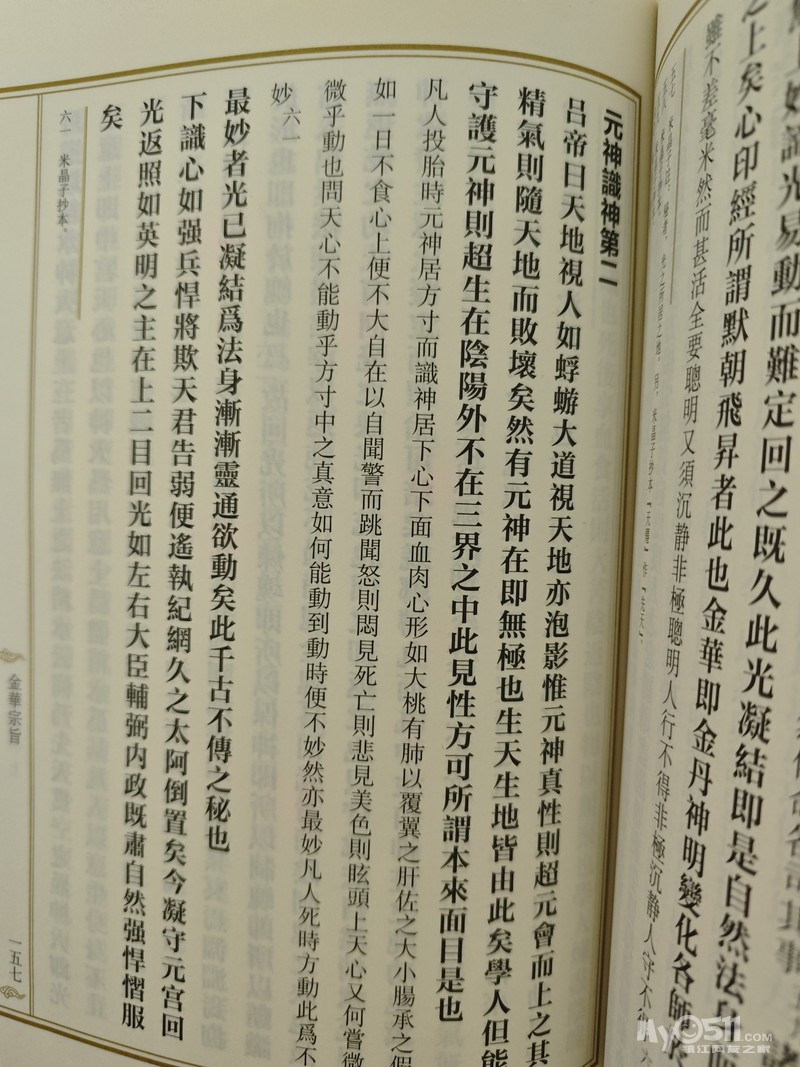 光易動而難定回之既久此光凝結即是自然法身
之上矣心印經所謂默朝飛昇者此也金華即金丹神明變化各師
雖不差毫米然而甚活全要聰明又須沉靜非極聰明人行不得非極沉靜人守不
元神識神第二
呂帝曰天地視人如蜉蝣大道視天地亦泡影惟元神真性則超元會而上之其
精氣則隨天地而敗壞矣然有元神在即無極也生天生地皆由此矣學人但能
守護元神則超生在陰陽外不在三界之中此見性方可所謂本來面目是也
凡人投胎時元神居方寸而識神居下心下面血肉心形如大桃有肺以覆翼之肝佐之大小腸承之假
如一日不食心上便不大自在以自聞警而跳聞怒則悶見死亡則悲見美色則眩頭上天心又何嘗微
微乎動也問天心不能動乎方寸中之真意如何能動到動時便不妙然亦最妙凡人死時方動此爲不
妙六一
最妙者光已凝結爲法身漸漸靈通欲動矣此千古不傳之秘也
下識心如强兵悍將欺天君告弱便遙執紀網久之太阿倒置矣今凝守元宮回
光返照如英明之主在上二目回光如左右大臣輔弼内政既肅自然强悍慴服
矣
六一 米晶子抄本。
金華宗旨
一五七